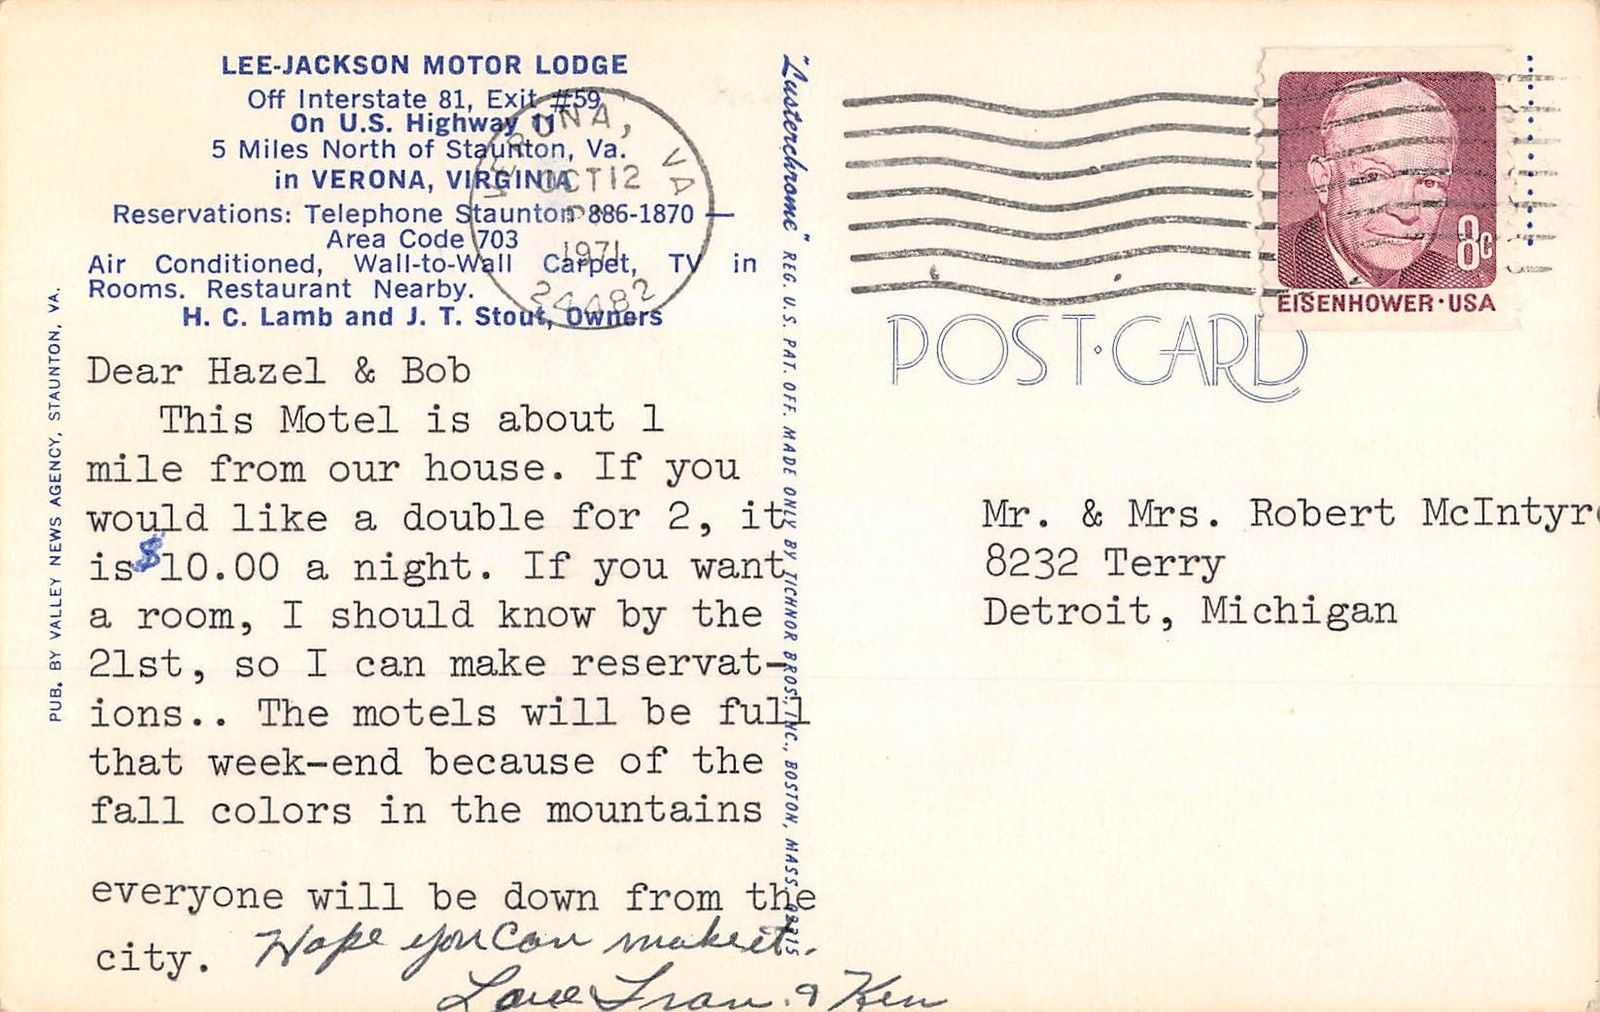 LEE-JACKSON MOTOR LODGE
Off Interstate 81, Exit #59
On U.S. Highway 11
5 Miles North of Staunton, Va.
in VERONA, VIRGINIA
Reservations: Telephone Staunton 886-1870 —
Area Code 703
Air Conditioned, Wall-to-Wall Carpet, TV in
Rooms. Restaurant Nearby.
H. C. Lamb and J. T. Stout, Owners
VERONA, VA
OCT 12
PM
1971
24482
PUB. BY VALLEY NEWS AGENCY, STAUNTON, VA.
Dear Hazel & Bob
This Motel is about 1
mile from our house. If you
would like a double for 2, it
is $10.00 a night. If you want
a room, I should know by the
21st, so I can make reservat-
ions.. The motels will be full
that week-end because of the
fall colors in the mountains
everyone will be down from the
city. Hope you can make it.
Love Fran & Ken
"Lusterchrome" REG. U.S. PAT. OFF. MADE ONLY BY TICHNOR BROS., INC., BOSTON, MASS. 02215
8c
EISENHOWER·USA
POST·CARD
Mr. & Mrs. Robert McIntyre
8232 Terry
Detroit, Michigan